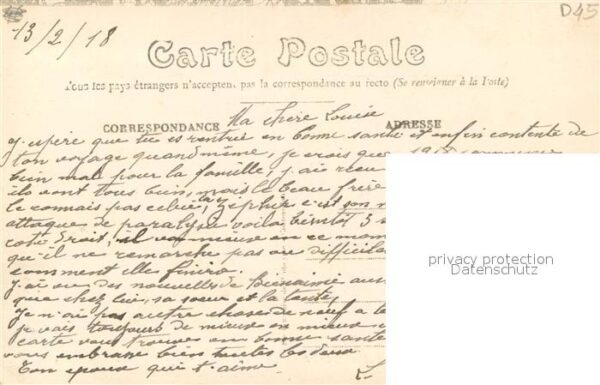 13/2/18
D45
Carte Postale
Tous les pays étrangers n'acceptent pas la correspondance au recto (Se renseigner à la Poste)
CORRESPONDANCE Ma chere Louise ADRESSE
J'espère que tu es rentrée en bonne santé et enfin contente de
ton voyage quand même, je crois que
bien mal pour la famille, j'ai recu
ils vont tous bien, mais le beau frère
le connais pas celui la, Zéphir c'est son
attaque de paralysie voila bientôt 3
coté droit, il va mieux en ce mom
qu'il ne remarche pas ou difficile
comment elle finira.
J'ai eu des nouvelles de Bienaimée aus
que chez lui, sa soeur et la tante,
Je n'ai pas autre chose de neuf a te
je vais toujours de mieux en mieux
carte vous trouver en bonne santé
vous embrasse bien toutes les deux
Ton epoux qui t'aime.
privacy protection
Datenschutz